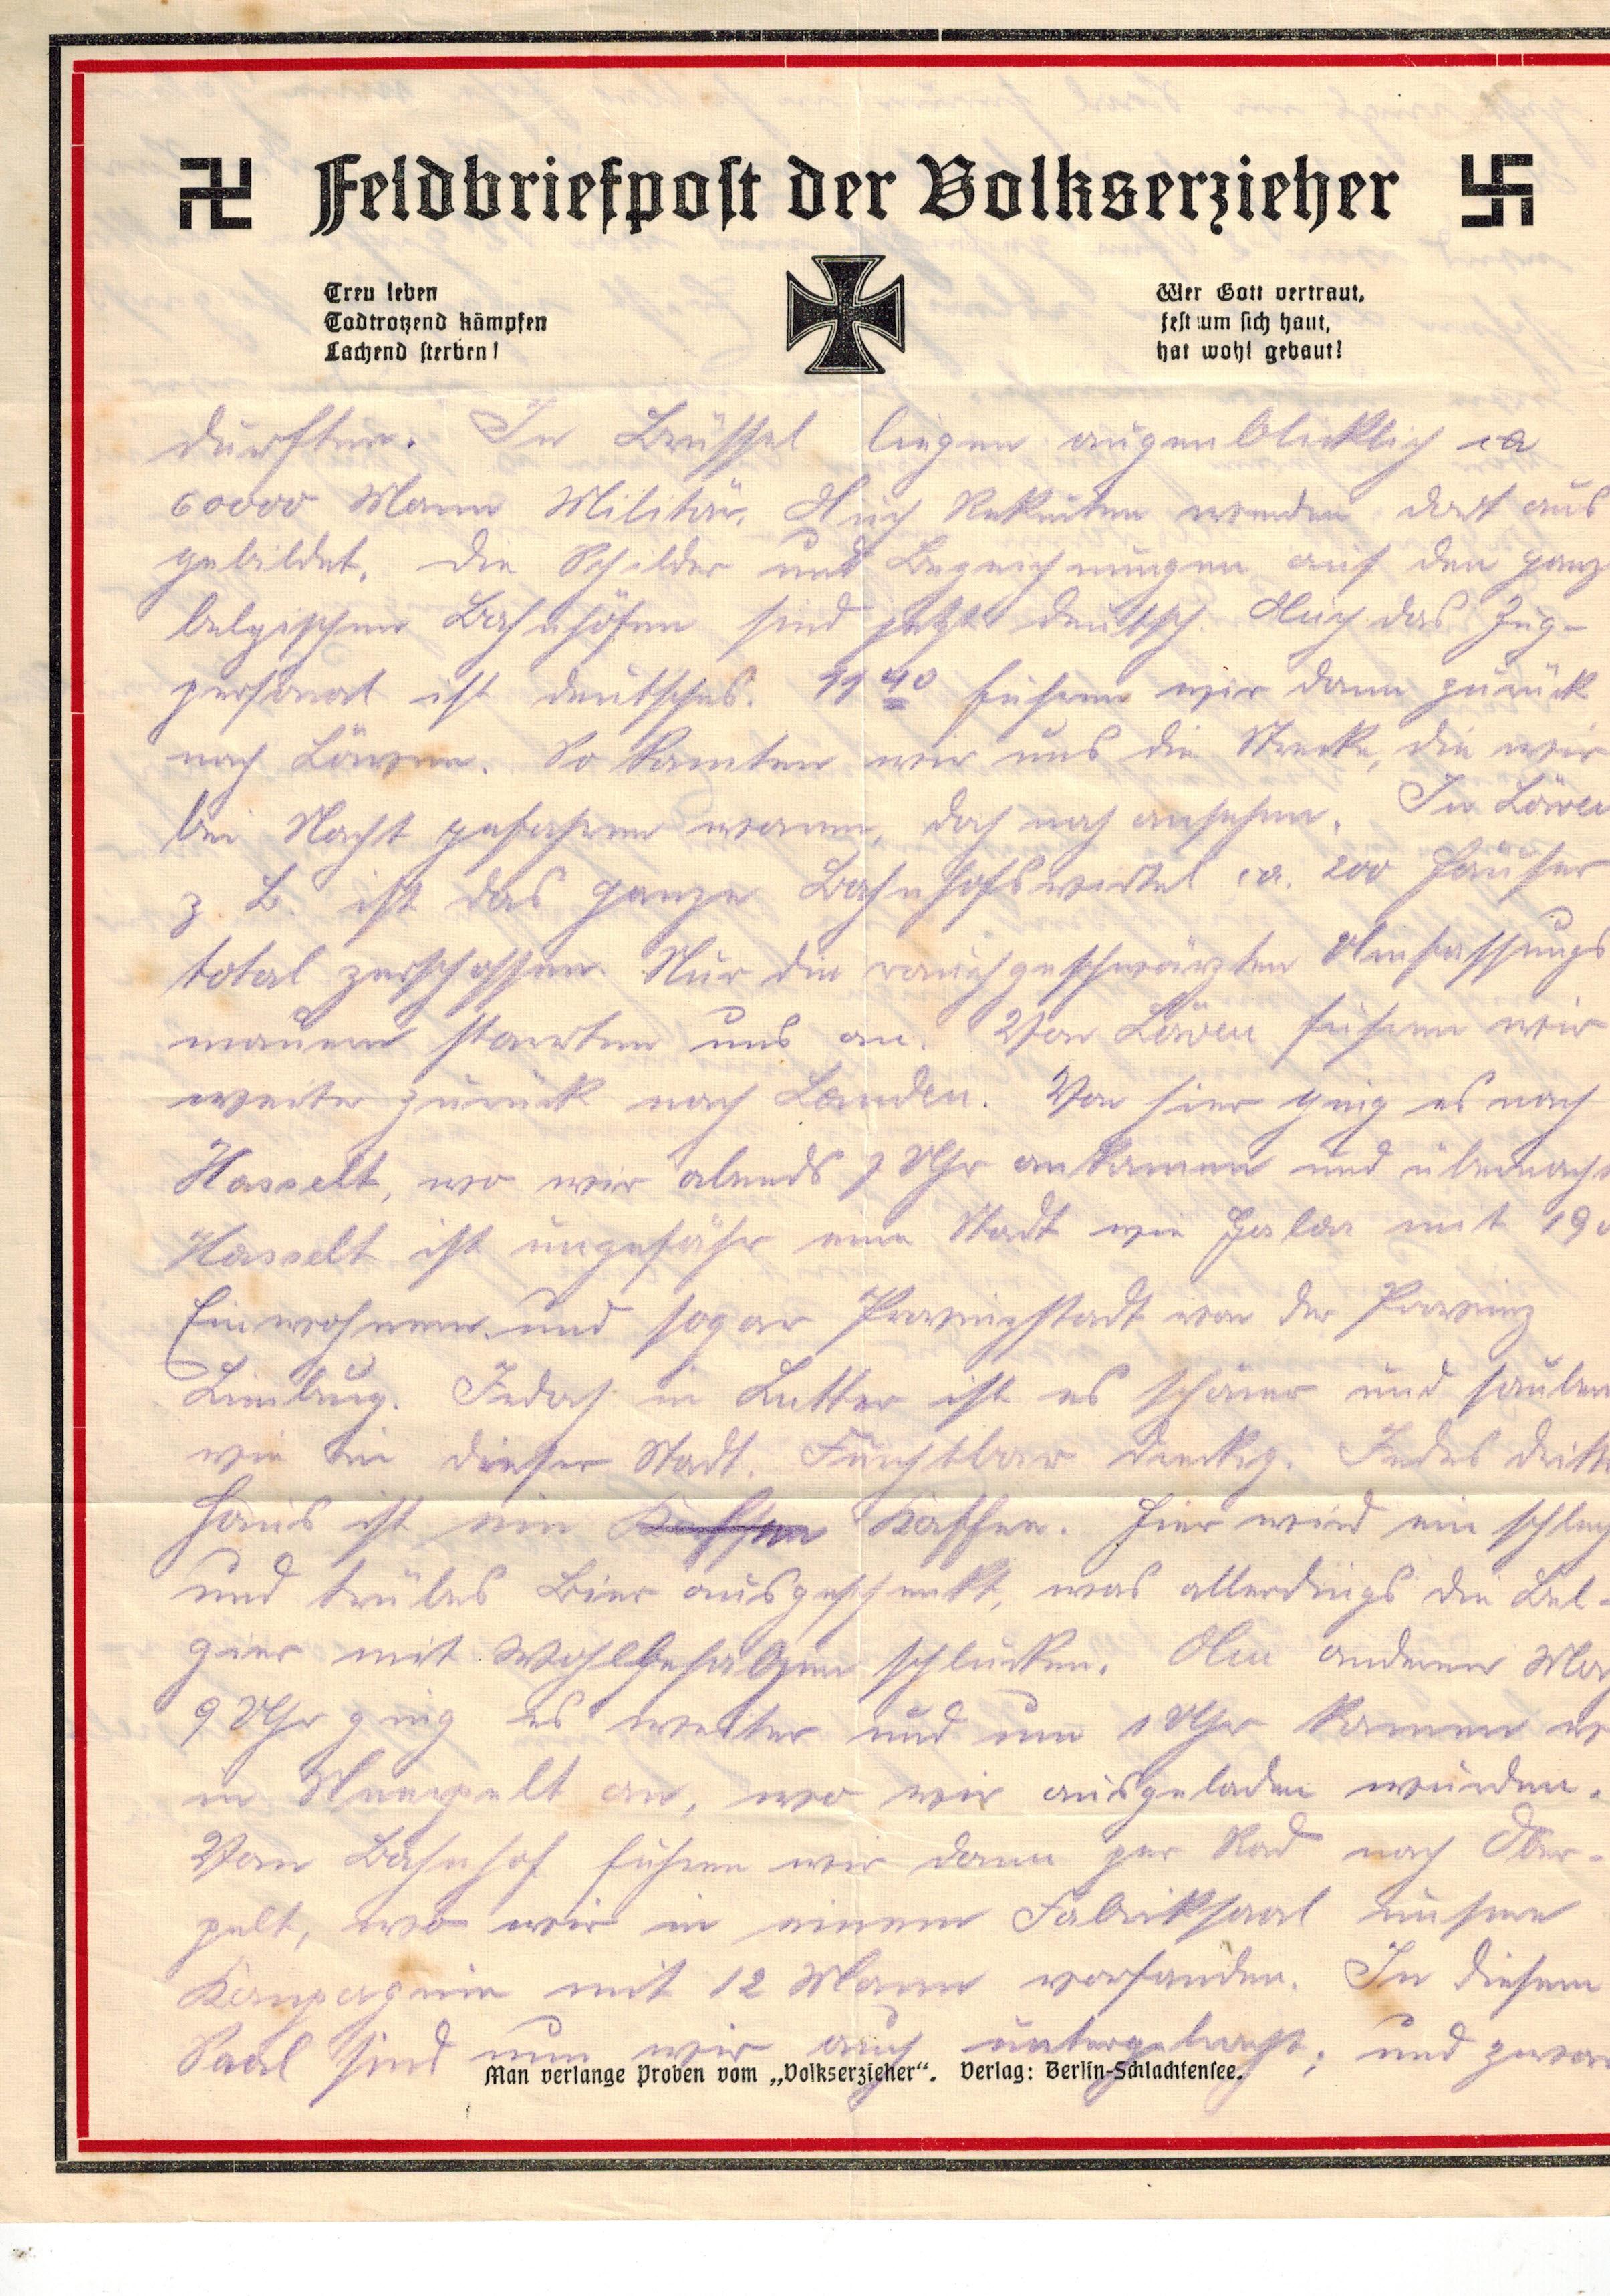 Feldbriefpost der Volkserzieher
Treu leben
Todtrotzend kämpfen
Lachend sterben!
Wer Gott vertraut,
fest um sich haut,
hat wohl gebaut!
durften. In Brüssel liegen augenblicklich ca
60000 Mann Militär. Auch Rekruten werden dort aus
gebildet. Die Schilder und Bezeichnungen auf den ganz
belgischen Bahnhöfen sind jetzt deutsch. Auch das Zug-
personal ist deutsches. 11 40 fuhren wir dann zurück
nach Löwen. So konnten wir uns die Strecke, die wir
bei Nacht gefahren waren, doch noch ansehen. In Löwen
z B. ist das ganze Bahnhofsviertel ca. 200 Häuser
total zerschossen. Nur die rauchgeschwärzten Umfassungs
mauern starrten uns an. Von Löwen fuhren wir
weiter zurück nach Landen. Von hier ging es nach
Hasselt, wo wir abends Uhr ankamen und übernacht
Hasselt ist ungefähr eine Stadt wie mit 190
Einwohnern und sogar Provinzstadt von der Provinz
Limburg. Jedoch in Lutter ist es schöner und sauberer
wie in dieser Stadt. Furchtbar dreckig. Jedes dritte
Haus ist ein Kaffee. Hier wird ein schlech
und trübes Bier ausgeschenkt, was allerdings die Bel-
gier mit Wohlbehagen schlucken. Am anderen Mor
9 Uhr ging es weiter und um 1 Uhr kamen w
in Neerpelt an, wo wir ausgeladen wurden.
Vom Bahnhof fuhren wir dann per Rad nach Ober-
pelt, wo wir in einem Fabriksaal unsere
Kompagnie mit 12 Mann vorfanden. In diesem
Saal sind nun wir auch untergebracht; und zwar
Man verlange Proben vom „Volkserzieher“. Verlag: Berlin-Schlachtensee.